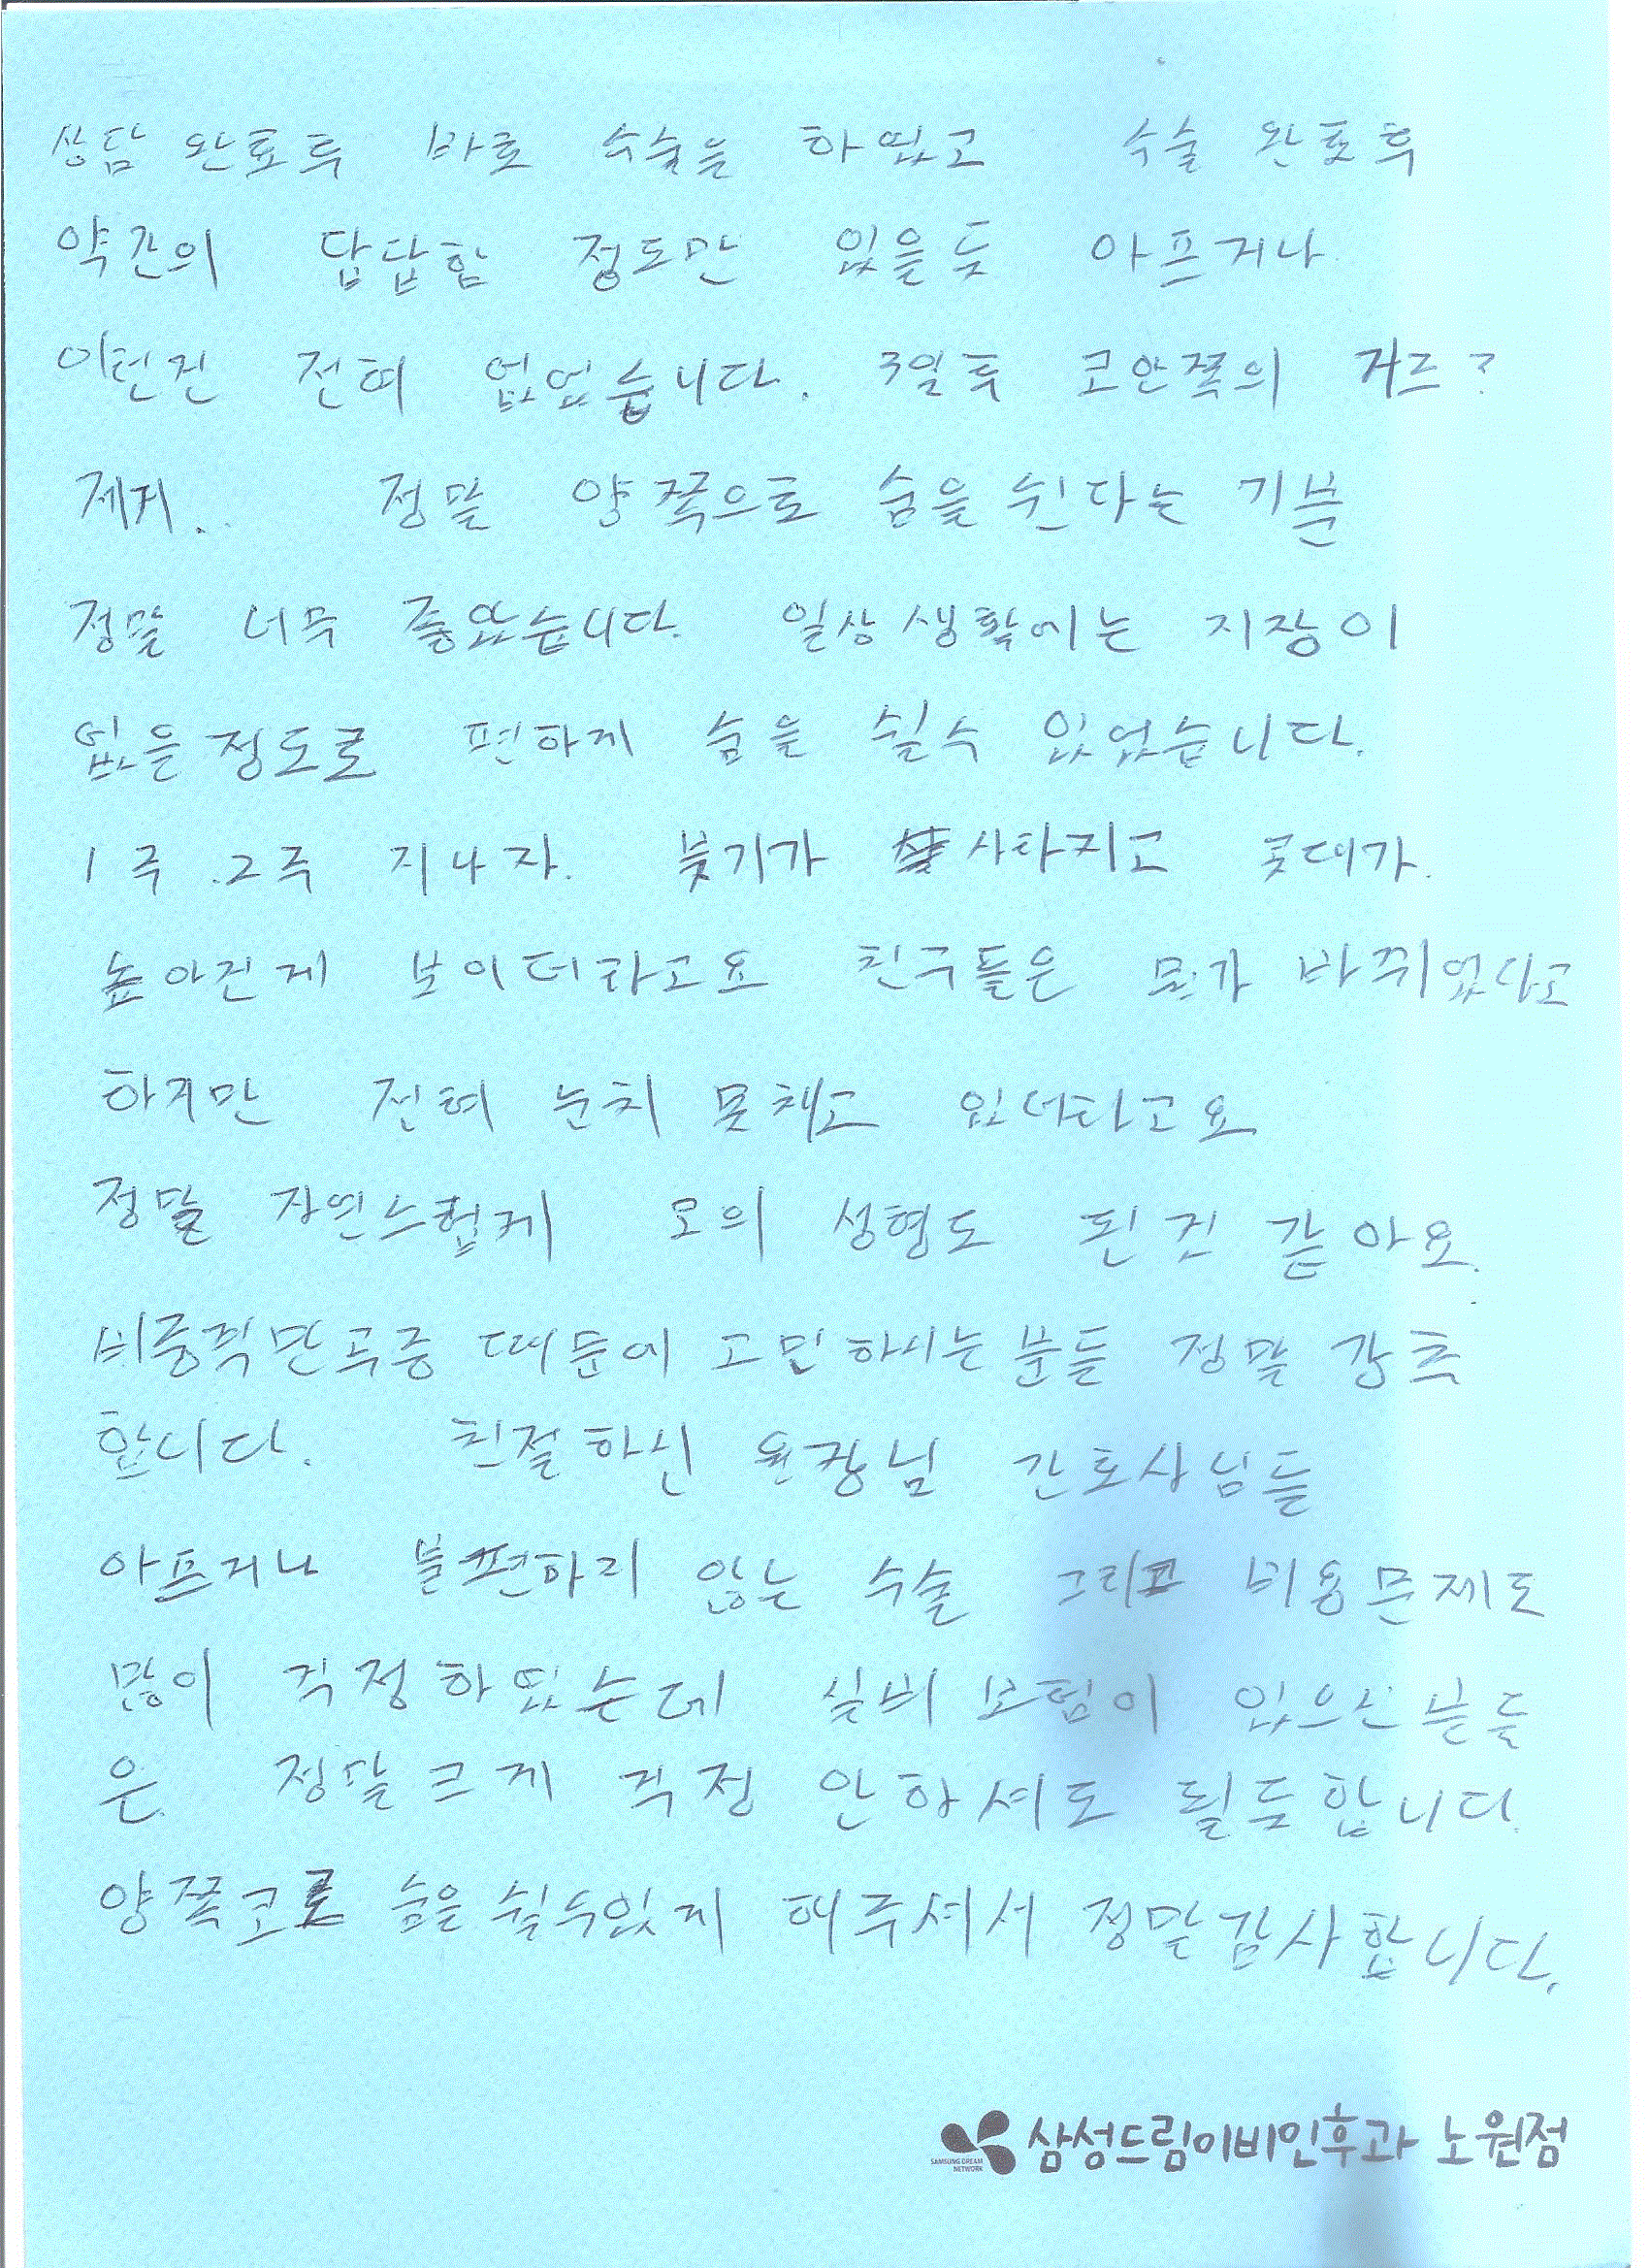 상담 완료후 바로 수술을 하였고 수술 완료후
약간의 답답함 정도만 있을듯 아프거나
이런건 전혀 없었습니다. 3일후 코안쪽의 거즈?
제거.. 정말 양쪽으로 숨을 쉰다는 기쁨
정말 너무 좋았습니다. 일상생활에는 지장이
없을정도로 편하게 숨을 쉴수 있었습니다.
1주.2주 지나자. 붓기가 사라지고 콧대가.
높아진게 보이더라고요 친구들은 뭔가 바뀌었다고
하지만 전혀 눈치 못채고 있더라고요
정말 자연스럽게 코의 성형도 된것 같아요.
비중격만곡증 때문에 고민하시는분들 정말 강추
합니다. 친절하신 원장님 간호사님들
아프거나 불편하지 않는 수술 그리고 비용문제도
많이 걱정하였는데 실비보험이 있으신분들
은 정말크게 걱정 안하셔도 될듯합니다.
양쪽코로 숨을쉴수있게 해주셔서 정말감사합니다.
SAMSUNG DREAM NETWORK 삼성드림이비인후과 노원점